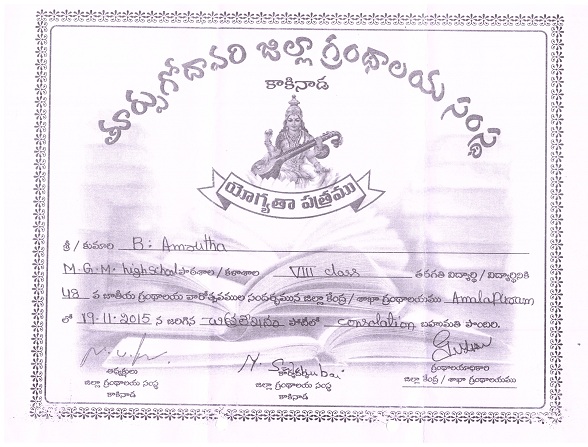 తూర్పుగోదావరి జిల్లా గ్రంథాలయ సంస్థ
కాకినాడ
యోగ్యతా పత్రము
శ్రీ / కుమారి B. Amrutha
M.G.M. highschool పాఠశాల / కళాశాల VIII class తరగతి విద్యార్థి / విద్యార్థినికి
48 వ జాతీయ గ్రంథాలయ వారోత్సవముల సందర్భమున జిల్లా కేంద్ర / శాఖా గ్రంథాలయము Amalapuram
లో 19-11-2015 న జరిగిన పోటీలో consolation బహుమతి పొందిరి.
అధ్యక్షులు
జిల్లా గ్రంథాలయ సంస్థ
కాకినాడ
కార్యదర్శి
జిల్లా గ్రంథాలయ సంస్థ
కాకినాడ
గ్రంథాలయాధికారి
జిల్లా కేంద్ర / శాఖా గ్రంథాలయము